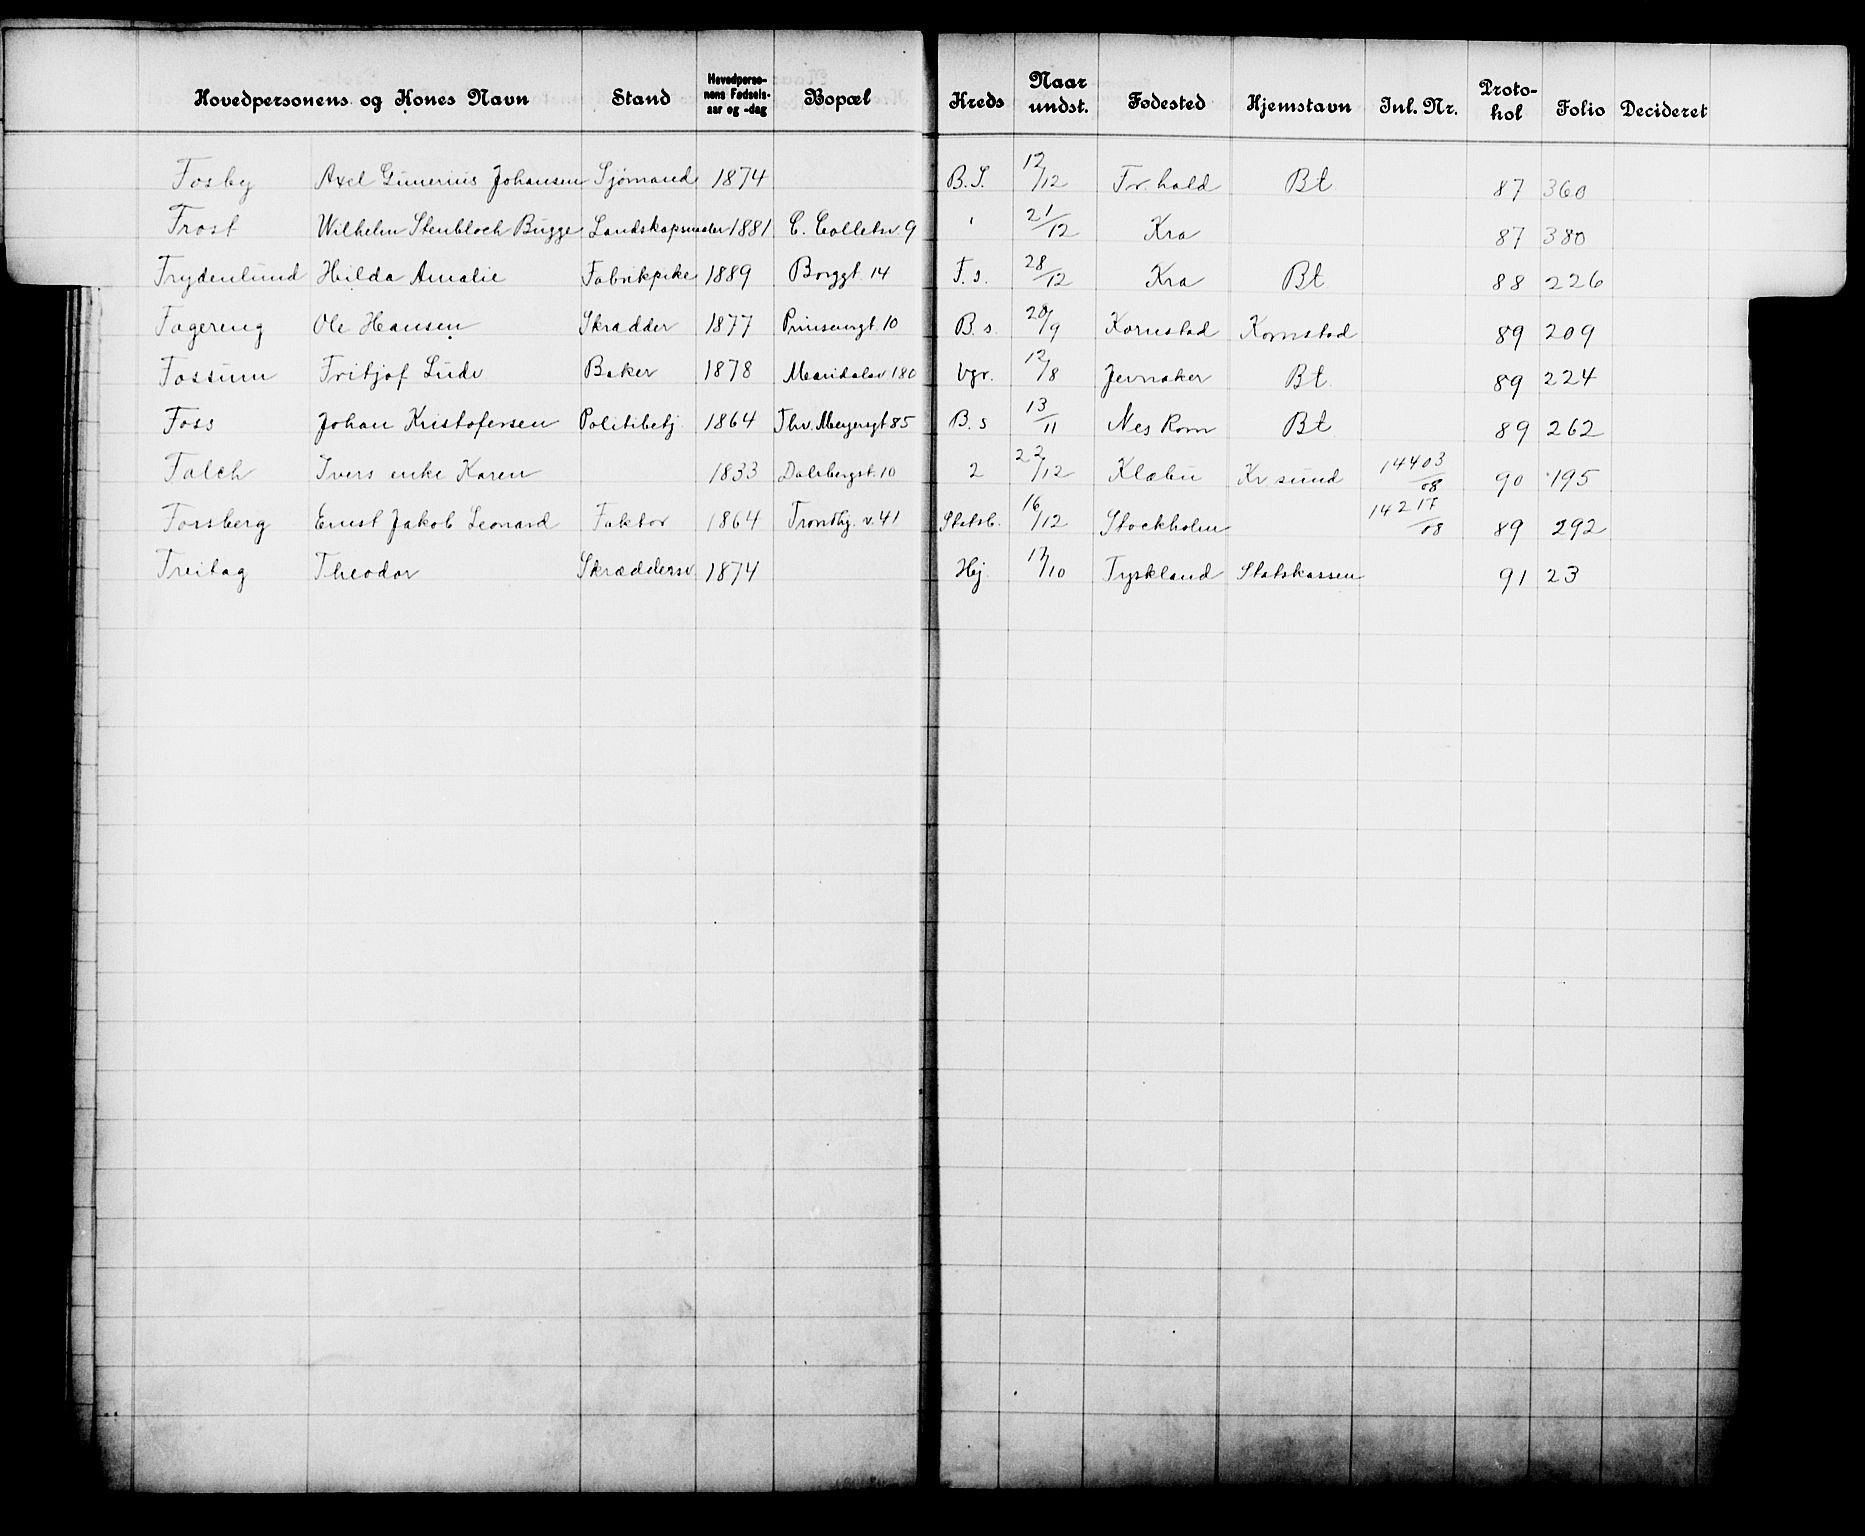 Hovedpersonens og Kones Navn Stand Hovedperso-nens Fødsels-aar og -dag Bopæl Kreds Naar undst. Fødested Hjemstavn Inl. Nr. Proto-kol Folio Decideret
Fosby Axel Gunerius Johansen Sjømand 1874 B.S. 12/12 Fr.hald Bt 87 360
Frost Wilhelm Stenbloch Bugge Landskapsmaler 1881 C. Colletsv. 9 ' 21/12 Kra 87 380
Frydenlund Hilda Amalie Fabrikpike 1889 Borggt. 14 F.s. 28/12 Kra Bt 88 226
Fagereng Ole Hansen Skradder 1877 Prinsensgt. 10 B.s. 20/9 Kornstad Kornstad 89 209
Fossum Fritjof Ludv Baker 1878 Maridalsv 180 Vgr. 12/8 Jevnaker Bt. 89 224
Foss Johan Kristofersen Politibetj. 1864 Thv. Meyersgt 85 B.s 13/11 Nes Rom Bt 89 262
Falch Ivers enke Karen 1833 Dalsbergst. 10 2 22/12 Klæbu Kr sund 14403/08 90 195
Forsberg Ernst Jakob Leonard Faktor 1864 Trondhj. v. 41 Statsb. 16/12 Stockholm 14217/08 89 292
Freitag Theodor Skræddersv. 1874 Hj. 17/10 Tyskland Statskassen 91 23